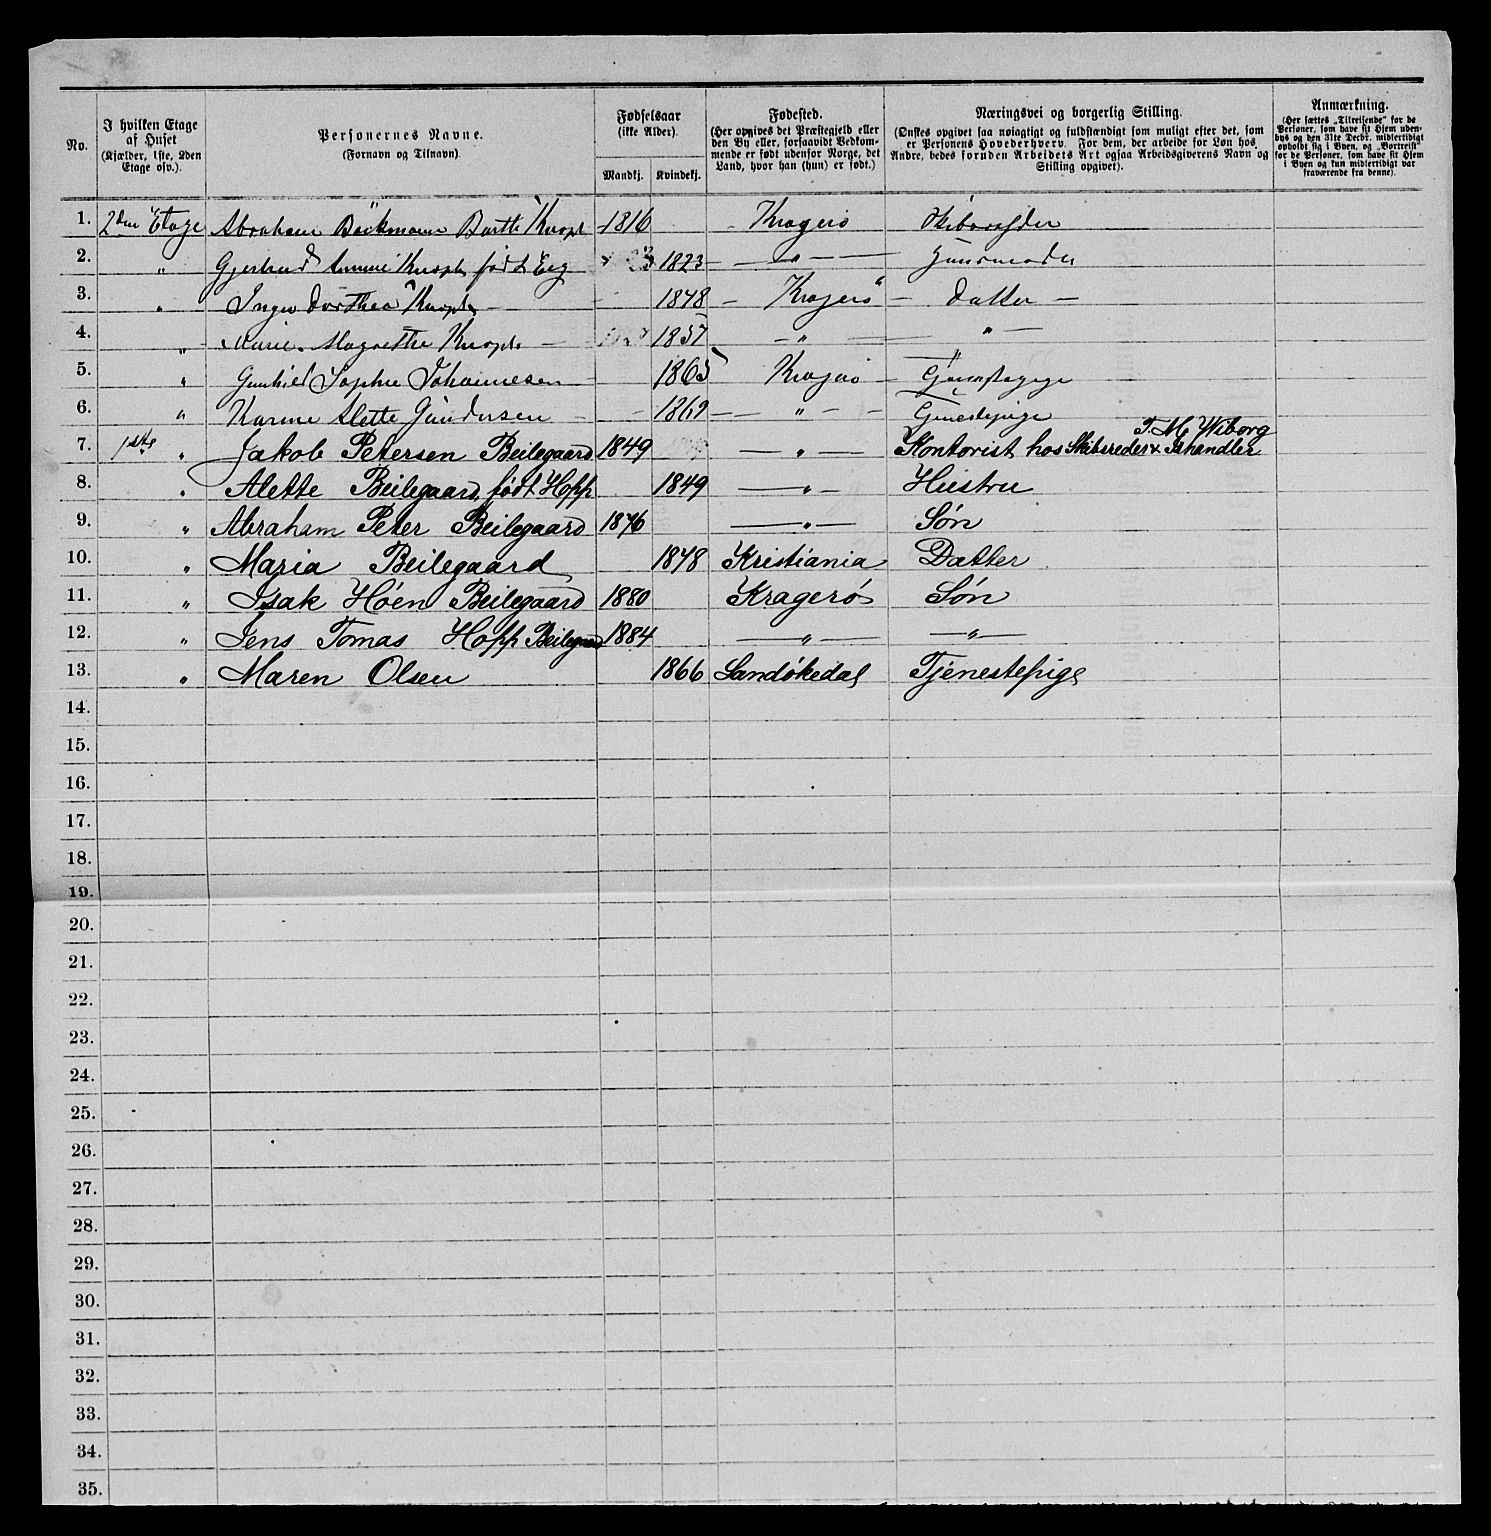 No. | I hvilken Etage af Huset (Kjælder, 1ste, 2den Etage osv.). | Personernes Navne. (Fornavn og Tilnavn) | Fødselsaar (ikke Alder). Mandkj. Kvindekj. | Fødested. (Her opgives det Præstegjeld eller den By eller, forsaavidt Vedkommende er født udenfor Norge, det Land, hvor han (hun) er født.) | Næringsvei og borgerlig Stilling. (Ønskes opgivet saa nøiagtigt og fuldstændigt som muligt efter det, som er Personens Hovederhverv. For dem, der arbeide for Løn hos Andre, bedes foruden Arbeidets Art ogsaa Arbeidsgiverens Navn og Stilling opgivet). | Anmærkning. (Her sættes „Tilreisende" for de Personer, som have sit Hjem udenbys og den 31te Decbr. midlertidigt opholdt sig i Byen, og „Bortreist" for de Personer, som have sit Hjem i Byen og kun midlertidigt var fraværende fra denne).
1. 2den Etage Abraham Böckmann Barth 1816 Kragerö
2. " Gjertrud født 1823 — " —
3. " Dorthea 1848 — Kragerö — Datter —
4. " Marie Magrethe 1857 — " — — " —
5. " Gunhild Sophie Johannesen 1865 Kragerö —
6. " Karine Alette Gundersen 1869 — " —
7. 1ste " Jakob Petersen Beilegaard 1849 — " — Kontorist hos Skibsreder & Ishandler P. M. Wiborg
8. " Alette Beilegaard, født Hopp 1849 — " — Hustru
9. " Abraham Peter Beilegaard 1876 — " — Søn
10. " Maria Beilegaard 1878 Kristiania Datter
11. " Isak Höen Beilegaard 1880 Kragerö Søn
12. " Jens Tomas Hopp Beilegaard 1884 — " — — " —
13. " Maren Olsen 1866 Sandökedal Tjenestepige
14.
15.
16.
17.
18.
19.
20.
21.
22.
23.
24.
25.
26.
27.
28.
29.
30.
31.
32.
33.
34.
35.